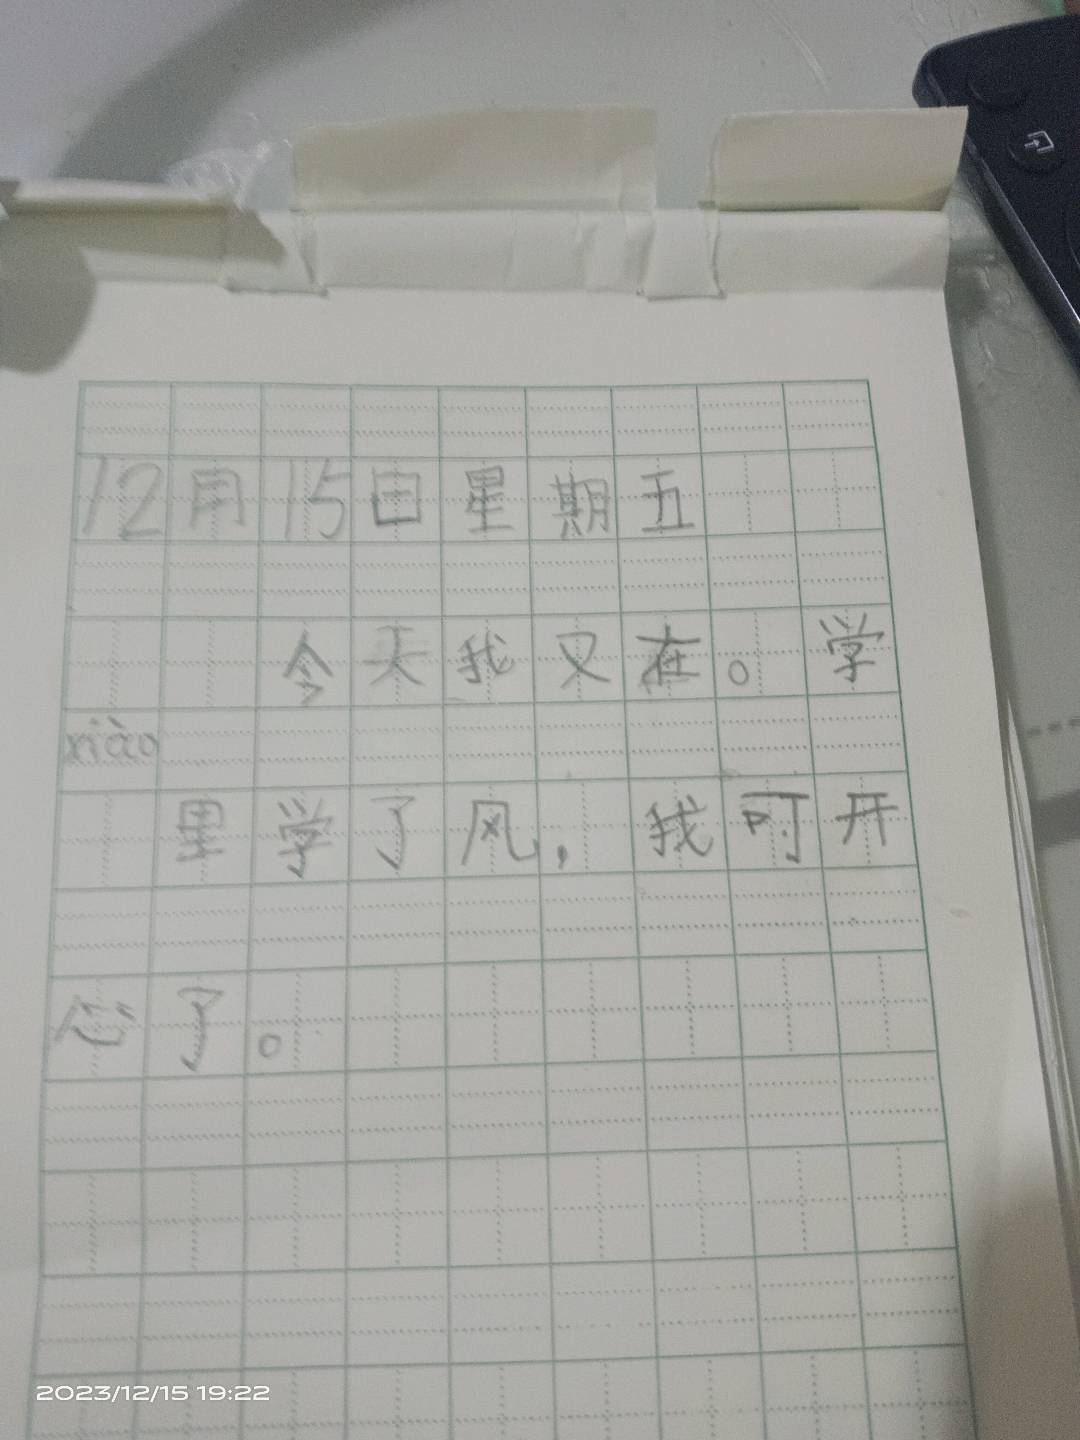 12月15日星期五
今天我又在。学
xiào
里学了风，我可开
心了。
2023/12/15 19:22